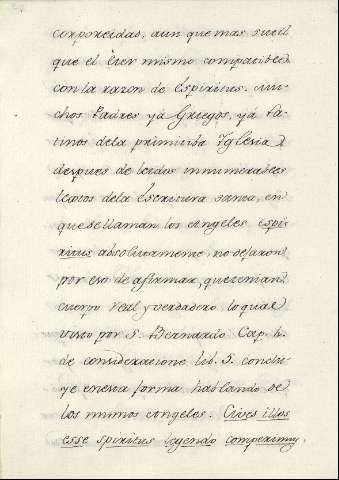 corporeidas, aun que mas sutil
que el Eter mismo compatible
con la razon de Espiritus. Mu-
chos Padres yá Griegos, yá La-
tinos dela primitiba Yglesia,
despues de leidos innumerables
textos dela Escritura santa, en
que se llaman los Angeles espi-
ritus absolutamente, no dejaron
por eso de afirmar, que tenian
cuerpo real y verdadero, lo qual
visto por S. Bernardo Cap. 4.
de consideracione lib. 5. conclu-
ye en esta forma, hablando de
los mismos Angeles. Cives illos
esse spiritus legendo comperimus.